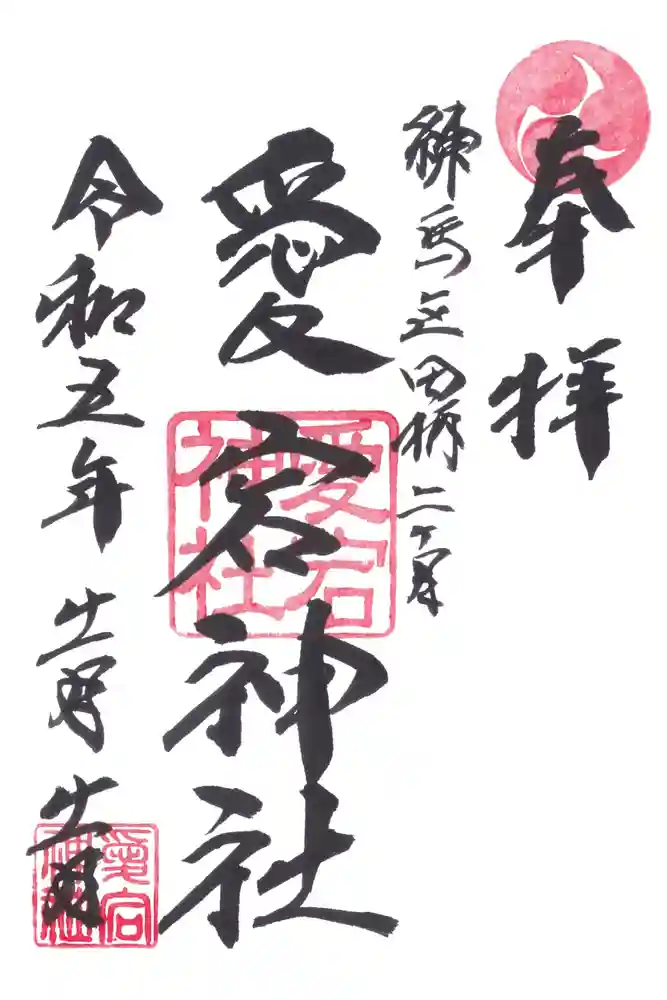 奉拝
練馬区田柄二
愛宕神社
愛宕神社
令和五年
愛宕神社